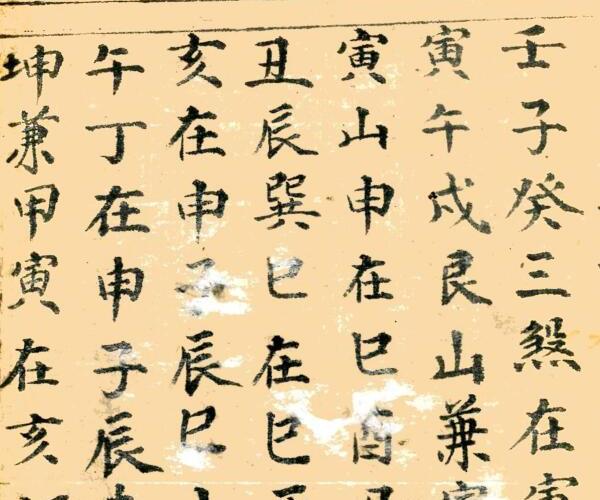 壬子癸三煞在寅
寅午戌艮山兼寅
寅山申在巳酉丑
丑辰巽巳在巳
亥在申子辰巳
午丁在申子辰
坤兼甲寅在亥